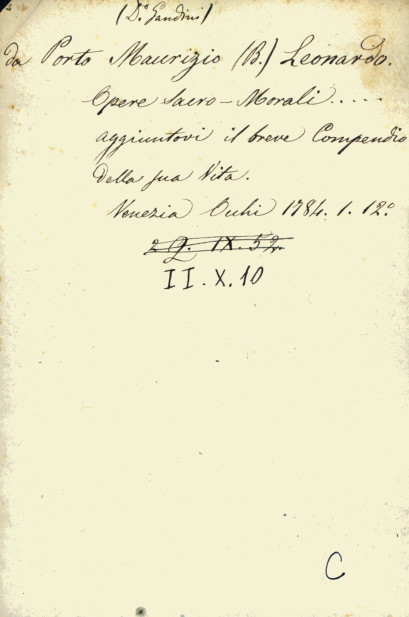 (D.º Gandini)
da Porto Maurizio (B.) Leonardo.
Opere Sacro-Morali.....
aggiuntovi il breve Compendio
della sua Vita.
Venezia Occhi 1784. 1. 12º
2 Q. IX. 52.
II.X.10
C